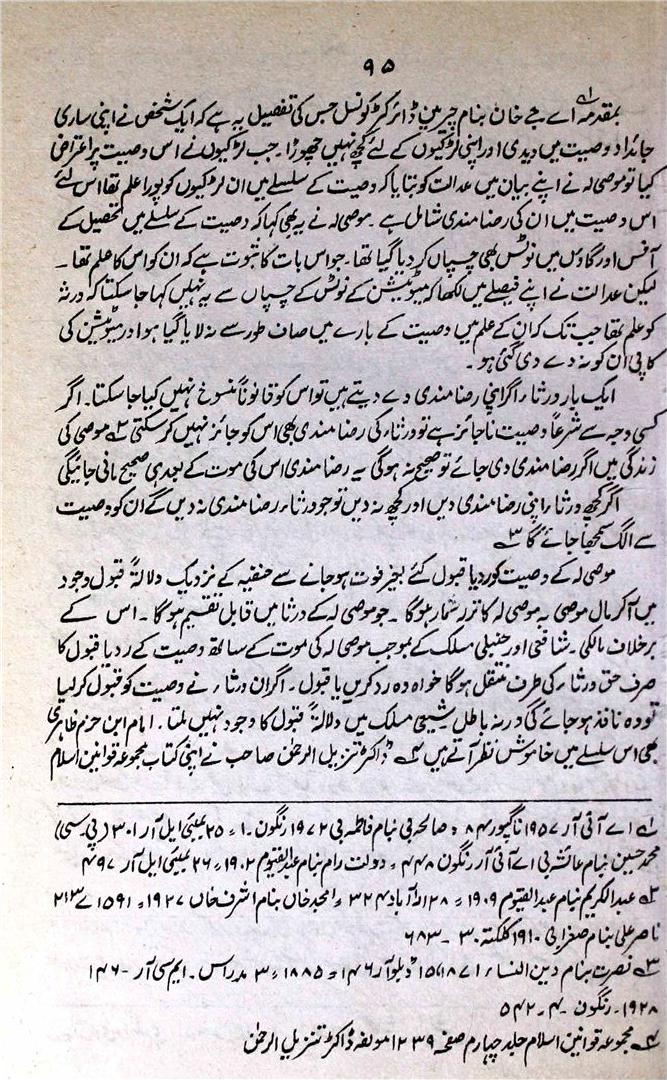 ۹۵
بمقدمہ اے جے خان بنام چیرمین ڈائرکٹر کونسل جس کی تفصیل یہ ہے کہ ایک شخص نے اپنی ساری
جائداد وصیت میں دیدی اور اپنی لڑکیوں کے لئے کچھ نہیں چھوڑا۔ جب لڑکیوں نے اس وصیت پر اعتراض
کیا تو موصی لہ نے اپنے بیان میں عدالت کو بتایا کہ وصیت کے سلسلے میں ان لڑکیوں کو پورا علم تھا اس لئے
اس وصیت میں ان کی رضامندی شامل ہے۔ موصی لہ نے یہ بھی کہا کہ وصیت کے سلسلے میں تحصیل کے
آفس اور گاؤں میں نوٹس بھی چسپاں کر دیا گیا تھا۔ جو اس بات کا ثبوت ہے کہ ان کو اس کا علم تھا۔
لیکن عدالت نے اپنے فیصلے میں لکھا کہ میوٹیشن کے نوٹس کے چسپاں سے یہ نہیں کہا جا سکتا کہ ورثہ
کو علم تھا جب تک کہ ان کے علم میں وصیت کے بارے میں صاف طور سے نہ لایا گیا ہو اور میوٹیشن کی
کاپی ان کو نہ دے دی گئی ہو۔
ایک بار ورثاء اگر اپنی رضامندی دے دیتے ہیں تو اس کو قانوناً منسوخ نہیں کیا جا سکتا۔ اگر
کسی وجہ سے شرعاً وصیت ناجائز ہے تو ورثاء کی رضامندی بھی اس کو جائز نہیں کر سکتی ۲؎ موصی کی
زندگی میں اگر رضامندی دی جائے تو صحیح نہ ہوگی یہ رضامندی اس کی موت کے بعد ہی صحیح مانی جائیگی
اگر کچھ ورثاء اپنی رضامندی دیں اور کچھ نہ دیں تو جو ورثاء رضامندی نہ دیں گے ان کو وصیت
سے الگ سمجھا جائے گا ۳؎
موصی لہ کے وصیت کو رد یا قبول کئے بغیر فوت ہو جانے سے حنفیہ کے نزدیک دلالۃً قبول وجود
میں آکر مال موصی بہ موصی لہ کا ترکہ شمار ہوگا۔ جو موصی لہ کے ورثا میں قابل تقسیم ہوگا۔ اس کے
برخلاف مالکی۔ شافعی اور حنبلی مسلک کے بموجب موصی لہ کی موت کے ساتھ وصیت کے رد یا قبول کا
صرف حق ورثاء کی طرف منتقل ہوگا خواہ وہ رد کریں یا قبول۔ اگر ان ورثاء نے وصیت کو قبول کر لیا
تو وہ نافذ ہو جائے گی ورنہ باطل شیعی مسلک میں دلالۃً قبول کا وجود نہیں ملتا۔ امام ابن حزم ظاہری
بھی اس سلسلے میں خاموش نظر آتے ہیں ۴؎ ڈاکٹر تنزیل الرحمٰن صاحب نے اپنی کتاب مجموعہ قوانین اسلام
۱؎ اے آئی آر ۱۹۵۷ ناگپور ۸۴، صالحہ بی بنام فاطمہ بی ۱۹۷۲ رنگون۔ ۱، ۲۵ بمبئی ایل آر ۳۰۱ (پی سی)
محمد حسین بنام عائشہ بی اے آئی آر رنگون ۴۴۸، دولت رام بنام عبدالقیوم ۱۹۰۲، ۲۶ بمبئی ایل آر ۴۹۷
۲؎ عبدالکریم بنام عبدالقیوم ۱۹۰۹، ۲۸ الہ آباد ۳۲۴، امجد خاں بنام اشرف خاں ۱۹۲۷، ۱۵۹۱ اے ۲۱۳
ناصر علی بنام صغرا بی ۱۹۱۰ کلکتہ ۳۰۔ ۶۸۳
۳؎ نصرت بنام دین النساء ۱۸۷۱، ۱۵ ڈبلو آر ۱۴۶، ۱۸۸۵، ۳ مدراس۔ ایم سی آر۔ ۱۴۶
۱۹۲۸۔ رنگون۔ ۴۔ ۵۴۲
۴؎ مجموعہ قوانین اسلام جلد چہارم صفحہ ۱۲۳۹ مولفہ ڈاکٹر تنزیل الرحمٰن